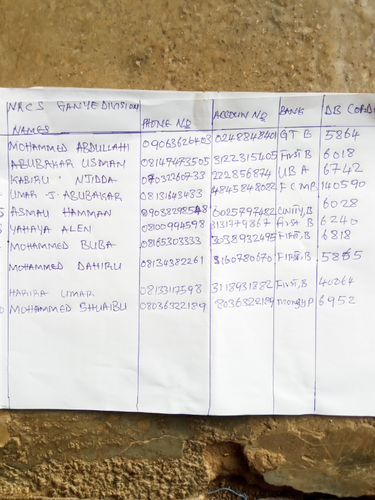 NRCS GANYE DIVISION
NAMES PHONE NO ACCOUNT NO BANK DB CODE
MOHAMMED ABDULLAHI 09063626403 0248248401 GT B 5864
ABUBAKAR USMAN 08149473505 3122315405 First B 6018
KABIRU NJIDDA 07031260733 222856874 UBA 6742
UMAR J. ABUBAKAR 08131643483 4845848022 FCMB 140590
ASMAU HAMMAN 08903829854 0025797482 UNITY, B 6028
YAHAYA ALEN 08100994598 3131779867 First B 6240
MOHAMMED BUBA 08165303333 3038932495 First, B 6818
MOHAMMED DAHIRU 08134382261 3160780670 First, B 5865
HARIRA UMAR 08133117598 3118931882 First, B 40064
MOHAMMED SHUAIBU 08036322189 8036322189 moneyP 6952